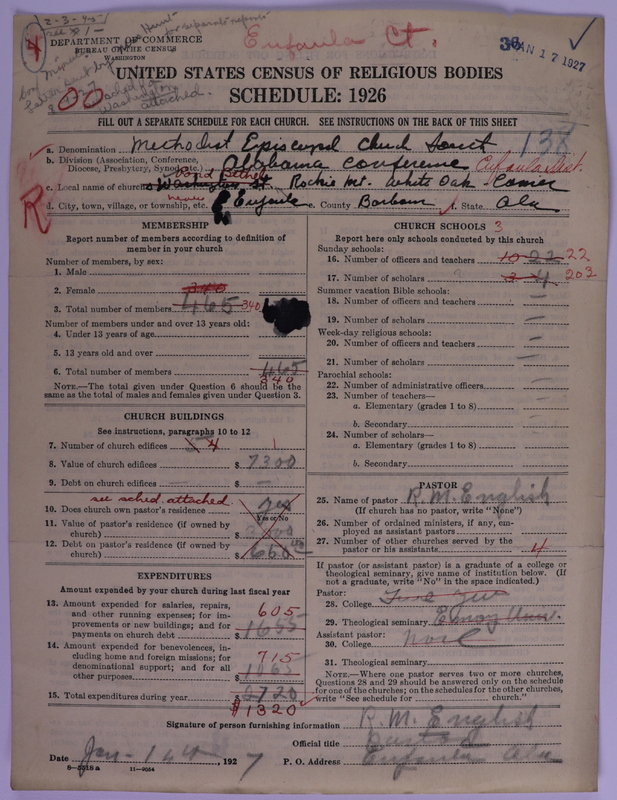 2-3-45
DEPARTMENT OF COMMERCE
BUREAU OF THE CENSUS
WASHINGTON
Eufaula Ct.
JAN 17 1927
attached.
UNITED STATES CENSUS OF RELIGIOUS BODIES
SCHEDULE: 1926
FILL OUT A SEPARATE SCHEDULE FOR EACH CHURCH. SEE INSTRUCTIONS ON THE BACK OF THIS SHEET
138
a. Denomination Methodist Episcopal Church South
b. Division (Association, Conference, Diocese, Presbytery, Synod, etc.) Alabama Conference Eufaula Dist.
c. Local name of church Washington St. Rockie Mt. White Oak - Comer
R
d. City, town, village, or township, etc. Eufaula e. County Barbour f. State Ala
MEMBERSHIP
Report number of members according to definition of
member in your church
Number of members, by sex:
1. Male
2. Female 340
3. Total number of members 465 340
Number of members under and over 13 years old:
4. Under 13 years of age
5. 13 years old and over
6. Total number of members 465
340
NOTE.—The total given under Question 6 should be the
same as the total of males and females given under Question 3.
CHURCH BUILDINGS
See instructions, paragraphs 10 to 12
7. Number of church edifices 4 1
8. Value of church edifices $ 7300
9. Debt on church edifices $ —
see sched. attached
10. Does church own pastor's residence yes
Yes or No
11. Value of pastor's residence (if owned by
church) $
12. Debt on pastor's residence (if owned by
church) $ 660
EXPENDITURES
Amount expended by your church during last fiscal year
13. Amount expended for salaries, repairs,
and other running expenses; for im-
provements or new buildings; and for
payments on church debt $ 1655
605
14. Amount expended for benevolences, in-
cluding home and foreign missions; for
denominational support; and for all
other purposes
715
15. Total expenditures during year
$1320
CHURCH SCHOOLS 3
Report here only schools conducted by this church
Sunday schools:
16. Number of officers and teachers 22 22
17. Number of scholars 4 203
Summer vacation Bible schools:
18. Number of officers and teachers —
19. Number of scholars —
Week-day religious schools:
20. Number of officers and teachers —
21. Number of scholars —
Parochial schools:
22. Number of administrative officers —
23. Number of teachers—
a. Elementary (grades 1 to 8)
b. Secondary
24. Number of scholars—
a. Elementary (grades 1 to 8)
b. Secondary
PASTOR
25. Name of pastor R. M. English
(If church has no pastor, write "None")
26. Number of ordained ministers, if any, em-
ployed as assistant pastors
27. Number of other churches served by the
pastor or his assistants 4
If pastor (or assistant pastor) is a graduate of a college or
theological seminary, give name of institution below. (If
not a graduate, write "No" in the space indicated.)
Pastor:
28. College
29. Theological seminary Emory Univ.
Assistant pastor:
30. College None
31. Theological seminary
NOTE.—Where one pastor serves two or more churches,
Questions 28 and 29 should be answered only on the schedule
for one of the churches; on the schedules for the other churches,
write "See schedule for church."
Signature of person furnishing information R. M. English
Official title Pastor
Date Jan - 14th, 1927 P. O. Address Eufaula Ala
8—5518 a 11—9054